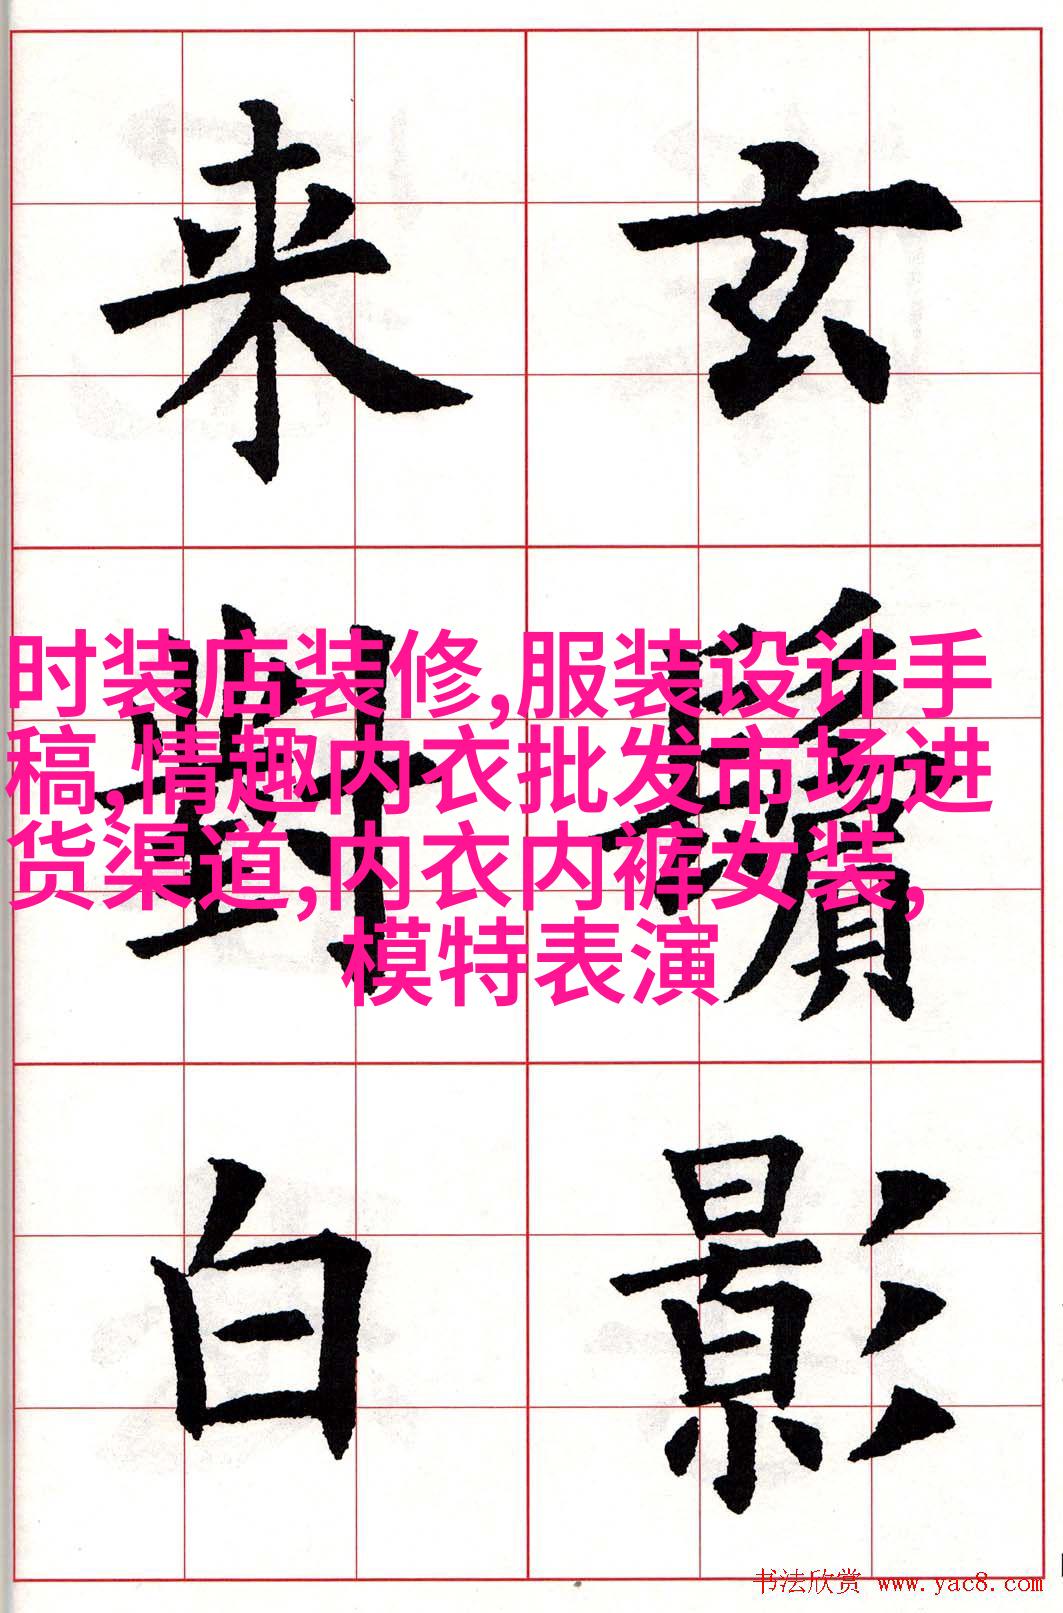 玄鬢影
来對白
时装店装修,服装设计手
稿,情趣内衣批发市场进
货渠道,内衣内裤女装,
模特表演
书法欣赏 www.yac8.com